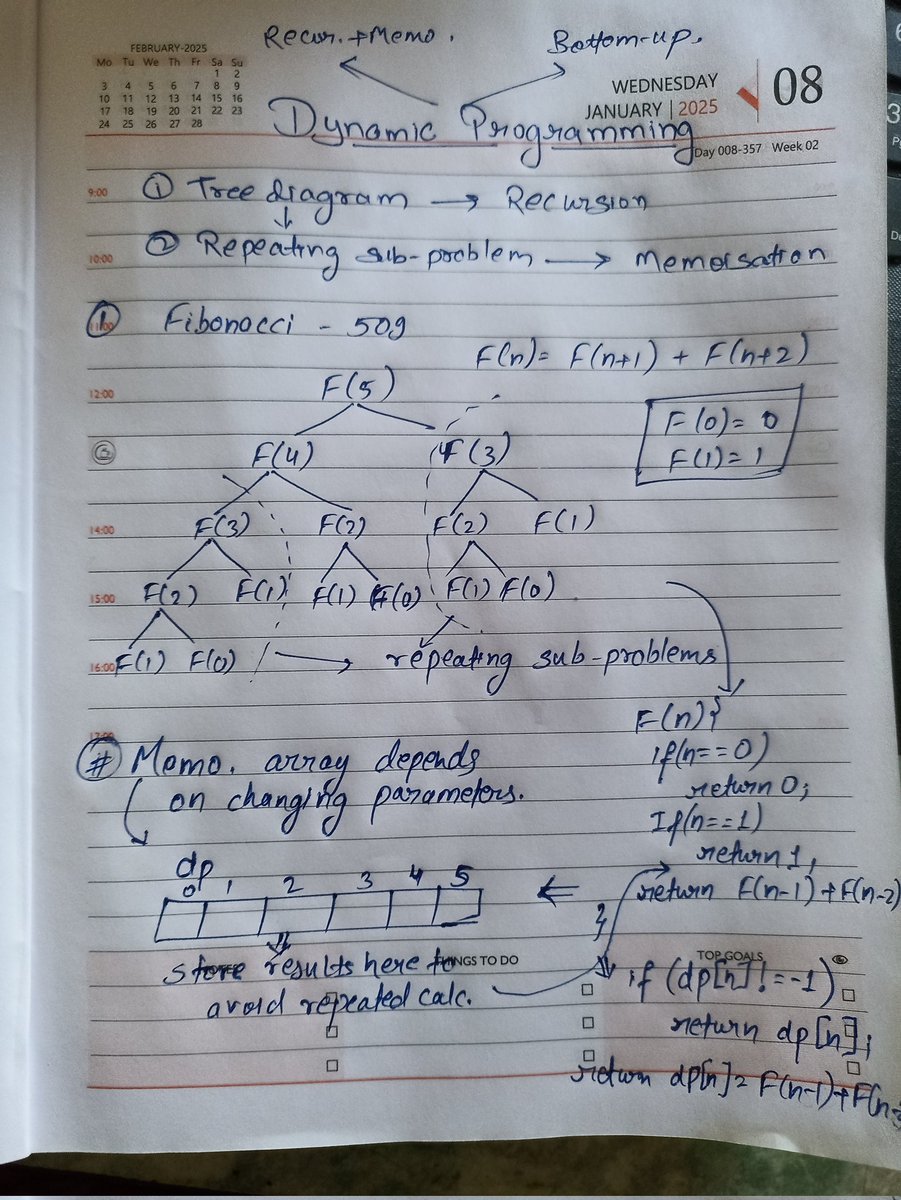 Recur. + Memo.
Bottom-up.
FEBRUARY-2025
Mo Tu We Th Fr Sa Su
1 2
3 4 5 6 7 8 9
10 11 12 13 14 15 16
17 18 19 20 21 22 23
24 25 26 27 28
WEDNESDAY
JANUARY | 2025
08
Dynamic Programming
Day 008-357 Week 02
9:00 ① Tree diagram → Recursion
10:00 ② Repeating sub-problem → Memorsation
11:00 ① Fibonacci - 509
F(n)= F(n+1) + F(n+2)
12:00 F(5)
F(0)= 0
F(1)= 1
F(4) F(3)
14:00 F(3) F(2) F(2) F(1)
15:00 F(2) F(1) F(1) F(0) F(1) F(0)
16:00 F(1) F(0) → repeating sub-problems
17:00
# Memo. array depends
on changing parameters.
F(n){
if(n==0)
return 0;
If(n==1)
return 1;
return F(n-1)+F(n-2)
}
dp
0 1 2 3 4 5
store results here to
avoid repeated calc.
THINGS TO DO
TOP GOALS
if (dp[n]!=-1)
return dp[n];
return dp[n]= F(n-1)+F(n-2